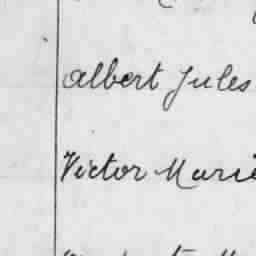 Albert Jules
Victor Marie